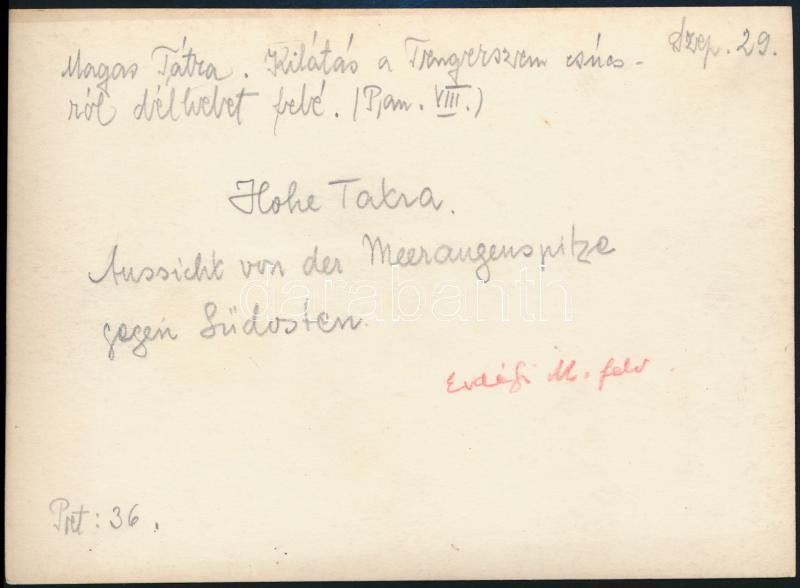 Szep. 29.
Magas Tátra. Kilátás a Tengerszem csúcs-
ról délkelet felé. (Pan. VIII.)
Hohe Tatra.
Aussicht von der Meeraugenspitze
gegen Südosten.
darabanth
Erdélyi M. felv.
: 36.